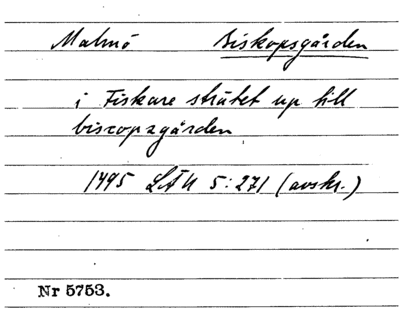 Malmö Biskopsgården
i Fiskare strätet up till
biscopzgården
1495 LÄU 5:271 (avskr.)
Nr 5753.